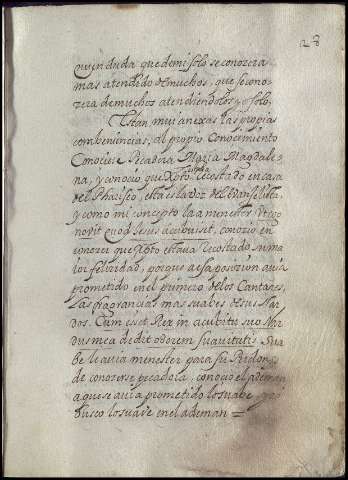 quien duda que de mi solo se conozcera
mas atendido de muchos, que se cono
zera de muchos atendiendolos yo solo.
Estan mui anexas las propias
combenincias, al propio Conocimiento
Conociose Pecadora Maria Magdale
na, y conocio que Xpto estaua recostado en casa
del Phariseo, esta es la voz del Euangelista
y como mi concepto la a menester Vt cog
novit quod Iesus accubuisset, conozio en
conozer que Xpto estaua recostado su ma
ior felizidad, porque a esa posizion auia
prometido en el primero de los Cantares,
las fragrancias mas suabes de sus Nar
dos Cum esset Rex in acubitu suo Nar
dus mea dedit odorem suauitatis Sua
be le auia menester para su Perdon
de conozerse pecadora, conozio el ademan
a que se auia prometido lo suabe, y
busco lo suave en el ademan =